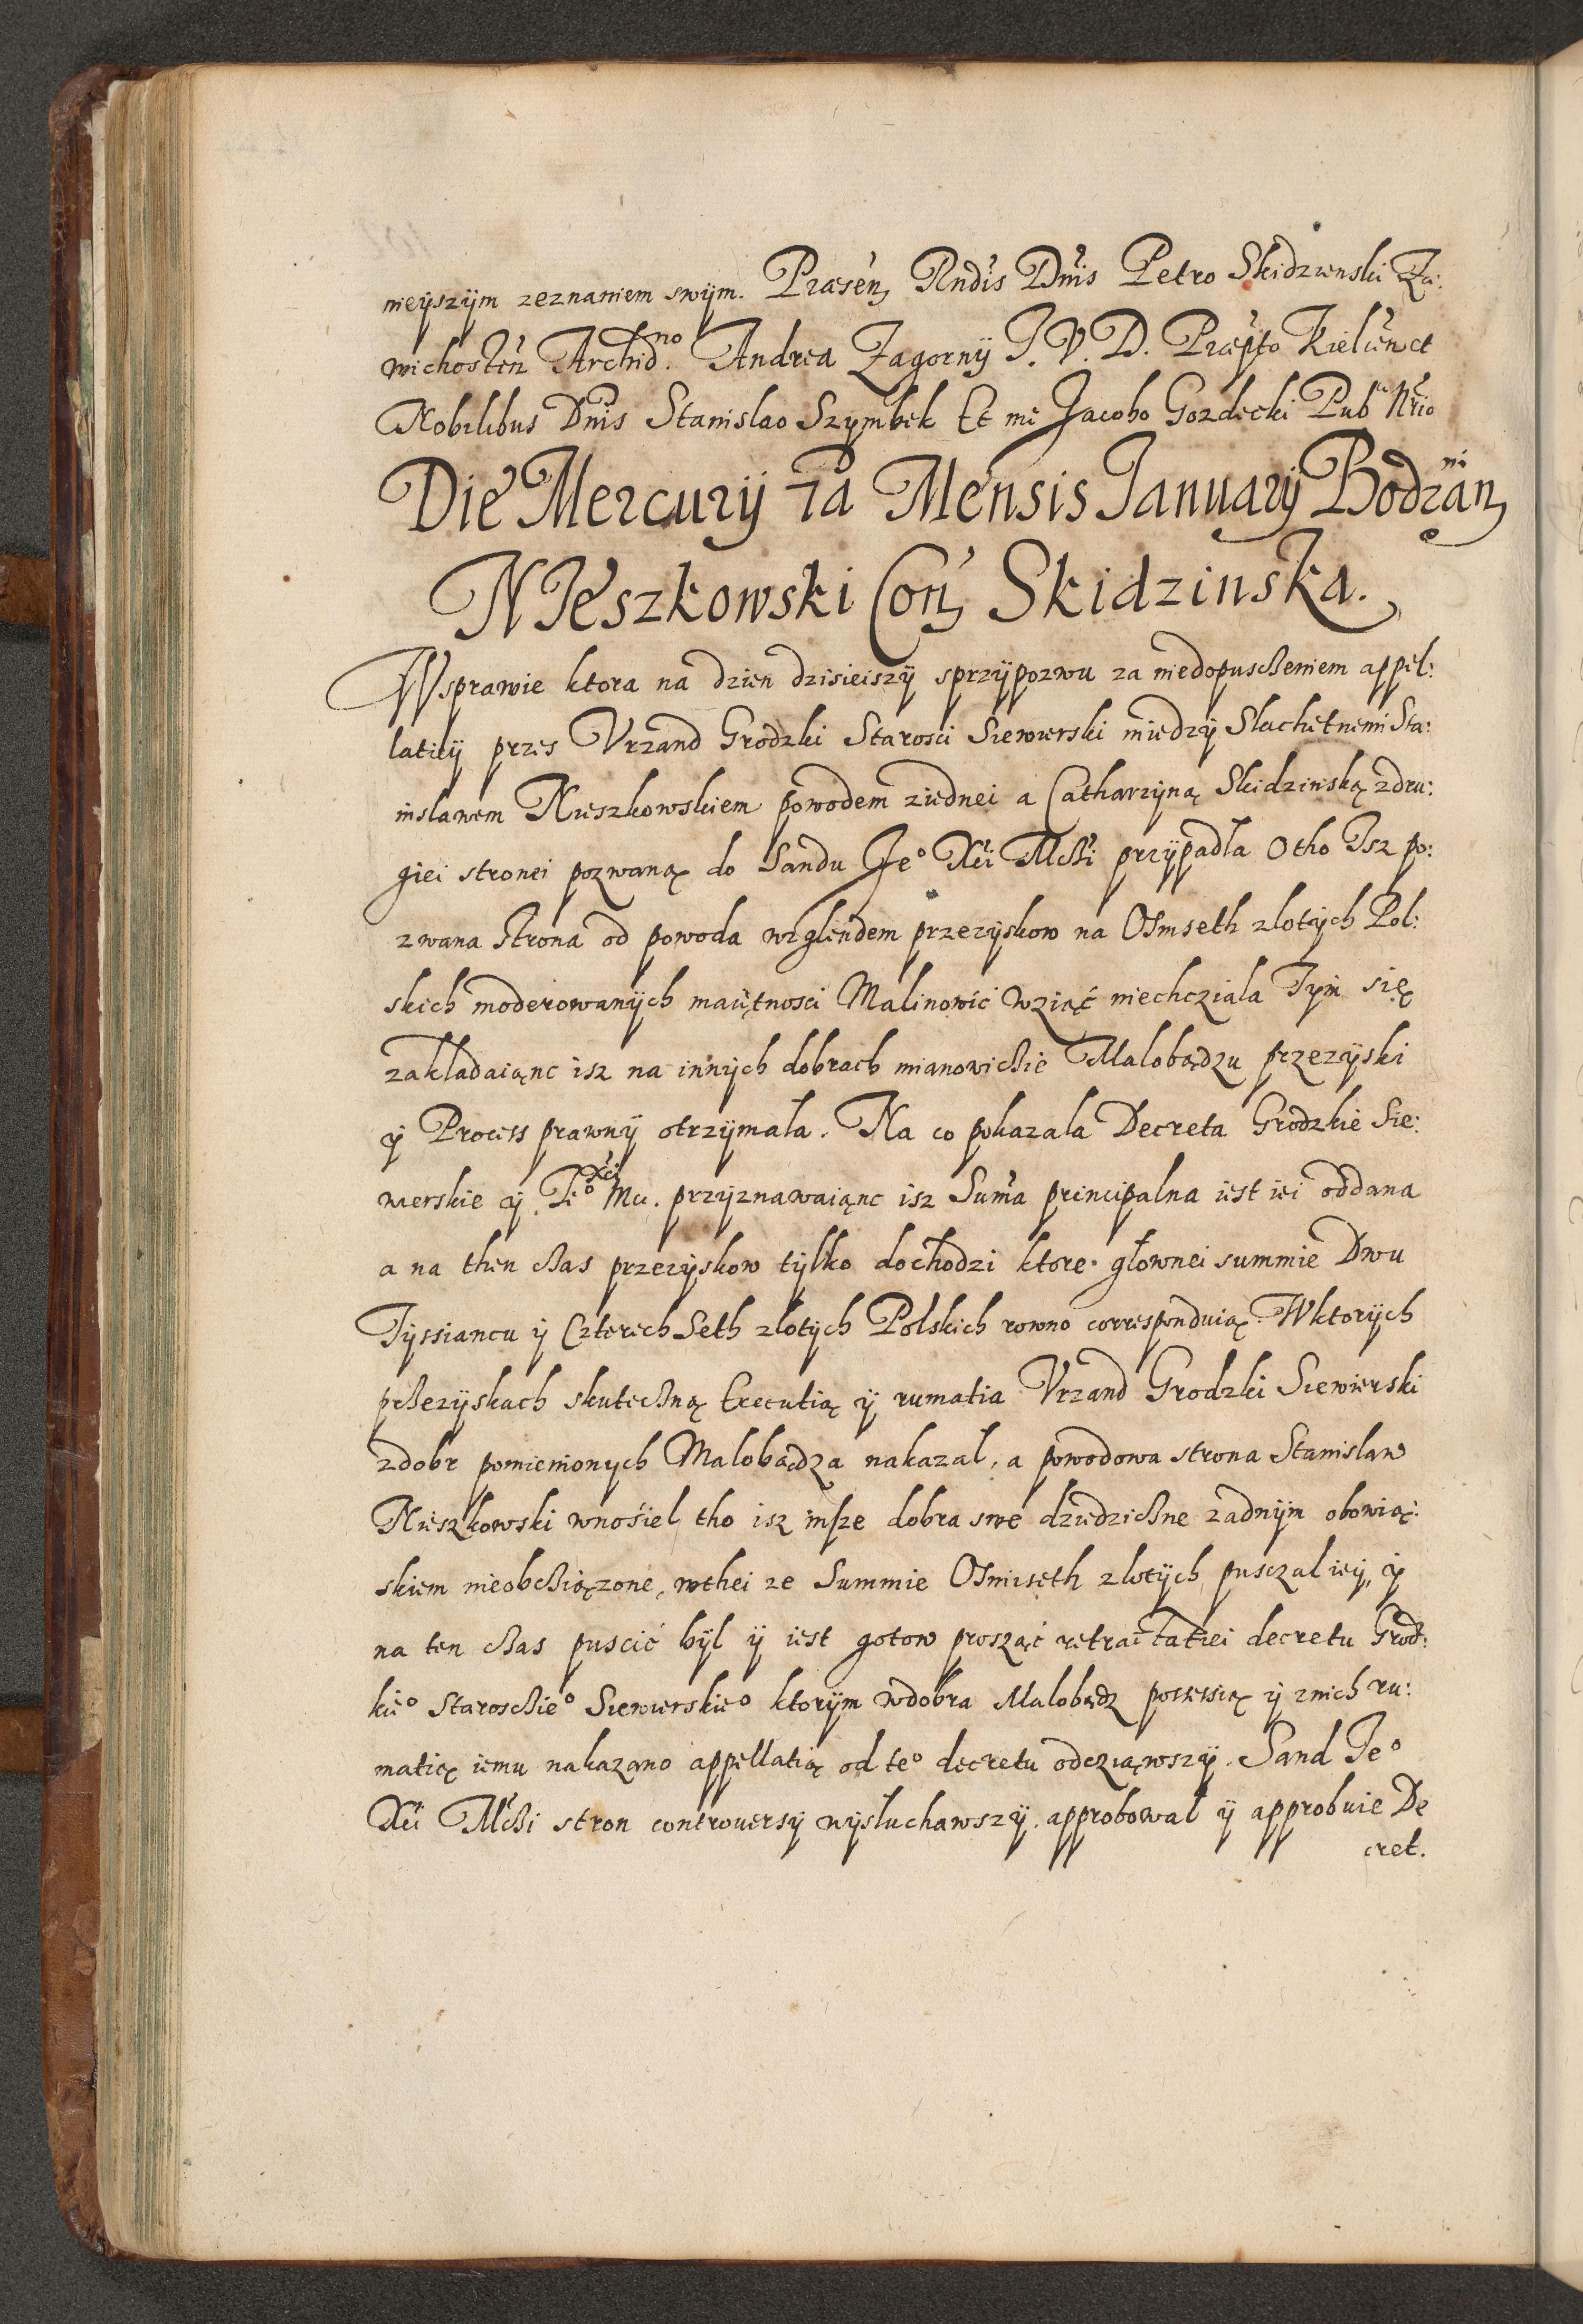 nieÿszÿm zeznaniem swÿm. Præsen Rndis Dnis Petro Skidzienski Za:
wichosten Archidno. Andrea Zagornÿ J. V. D. Præpto Kielcien et
Nobilibus Dnis Stanislao Szymbek Et me Jacobo Gozdecki Pubco Nrio
Die Mercurÿ 7a Mensis Januarÿ Bodzani
NIeszkowski Con Skidzinska.
Wsprawie ktora na dzien dzisieiszÿ sprzÿpozwu za niedopuscheniem appel:
latiiÿ przes Vrzand Grodzki Starosci Siewierski miedzÿ Slachetnemi Sta:
nislawem Nieszkowskiem powodem ziednei a Catharzÿną Skidzinską zdru:
giei stronei pozwaną do Sandu Jeo Xci Mchi przÿpadla o tho Isz po:
zwana strona od powoda wzglendem przezÿskow na Osmseth zlotÿch Pol:
skich moderowanÿch maiętnosci Malinowic wziąć niechcziala Tÿm się
zakladaiąnc isz na innÿch dobrach mianowichie Malobądzu przezÿski
ÿ Process prawnÿ otrzÿmala. Na co pokazala Decreta Grodzkie Sie:
wierskie ÿ Jeo Xci Mci. przÿznawaiąnc isz Suma principalna iest iei oddana
a na then chas przezÿskow tÿlko dochodzi ktore głownei summie Dwu
Tÿssiancu ÿ Czterech Seth zlotÿch Polskich rowno corresponduią. Wktorÿch
pchezÿskach skutechną Executią ÿ rumatia Vrzand Grodzki Siewierski
zdobr pomienionych Malobądza nakazal, a powodowa strona Stanislaw
Nieszkowski wnosiel tho isz insze dobra swe dziedzichne zadnÿm obowią:
skiem nieobchiązone, wthei ze Summie Osmiseth zlotÿch pusczal ieÿ, ÿ
na ten chas puscić bÿl ÿ iest gotow prosząć retractatiei decretu Grod:
kieo Staroschieo Siewierskieo ktorÿm wdobra Malobądz possessią ÿ znich ru:
matię iemu nakazano appellatią od teo decretu odcziąwszÿ. Sand Jeo
Xci Mchi stron controuersÿ wÿsłuchawszÿ. approbował ÿ approbuie De
cret.